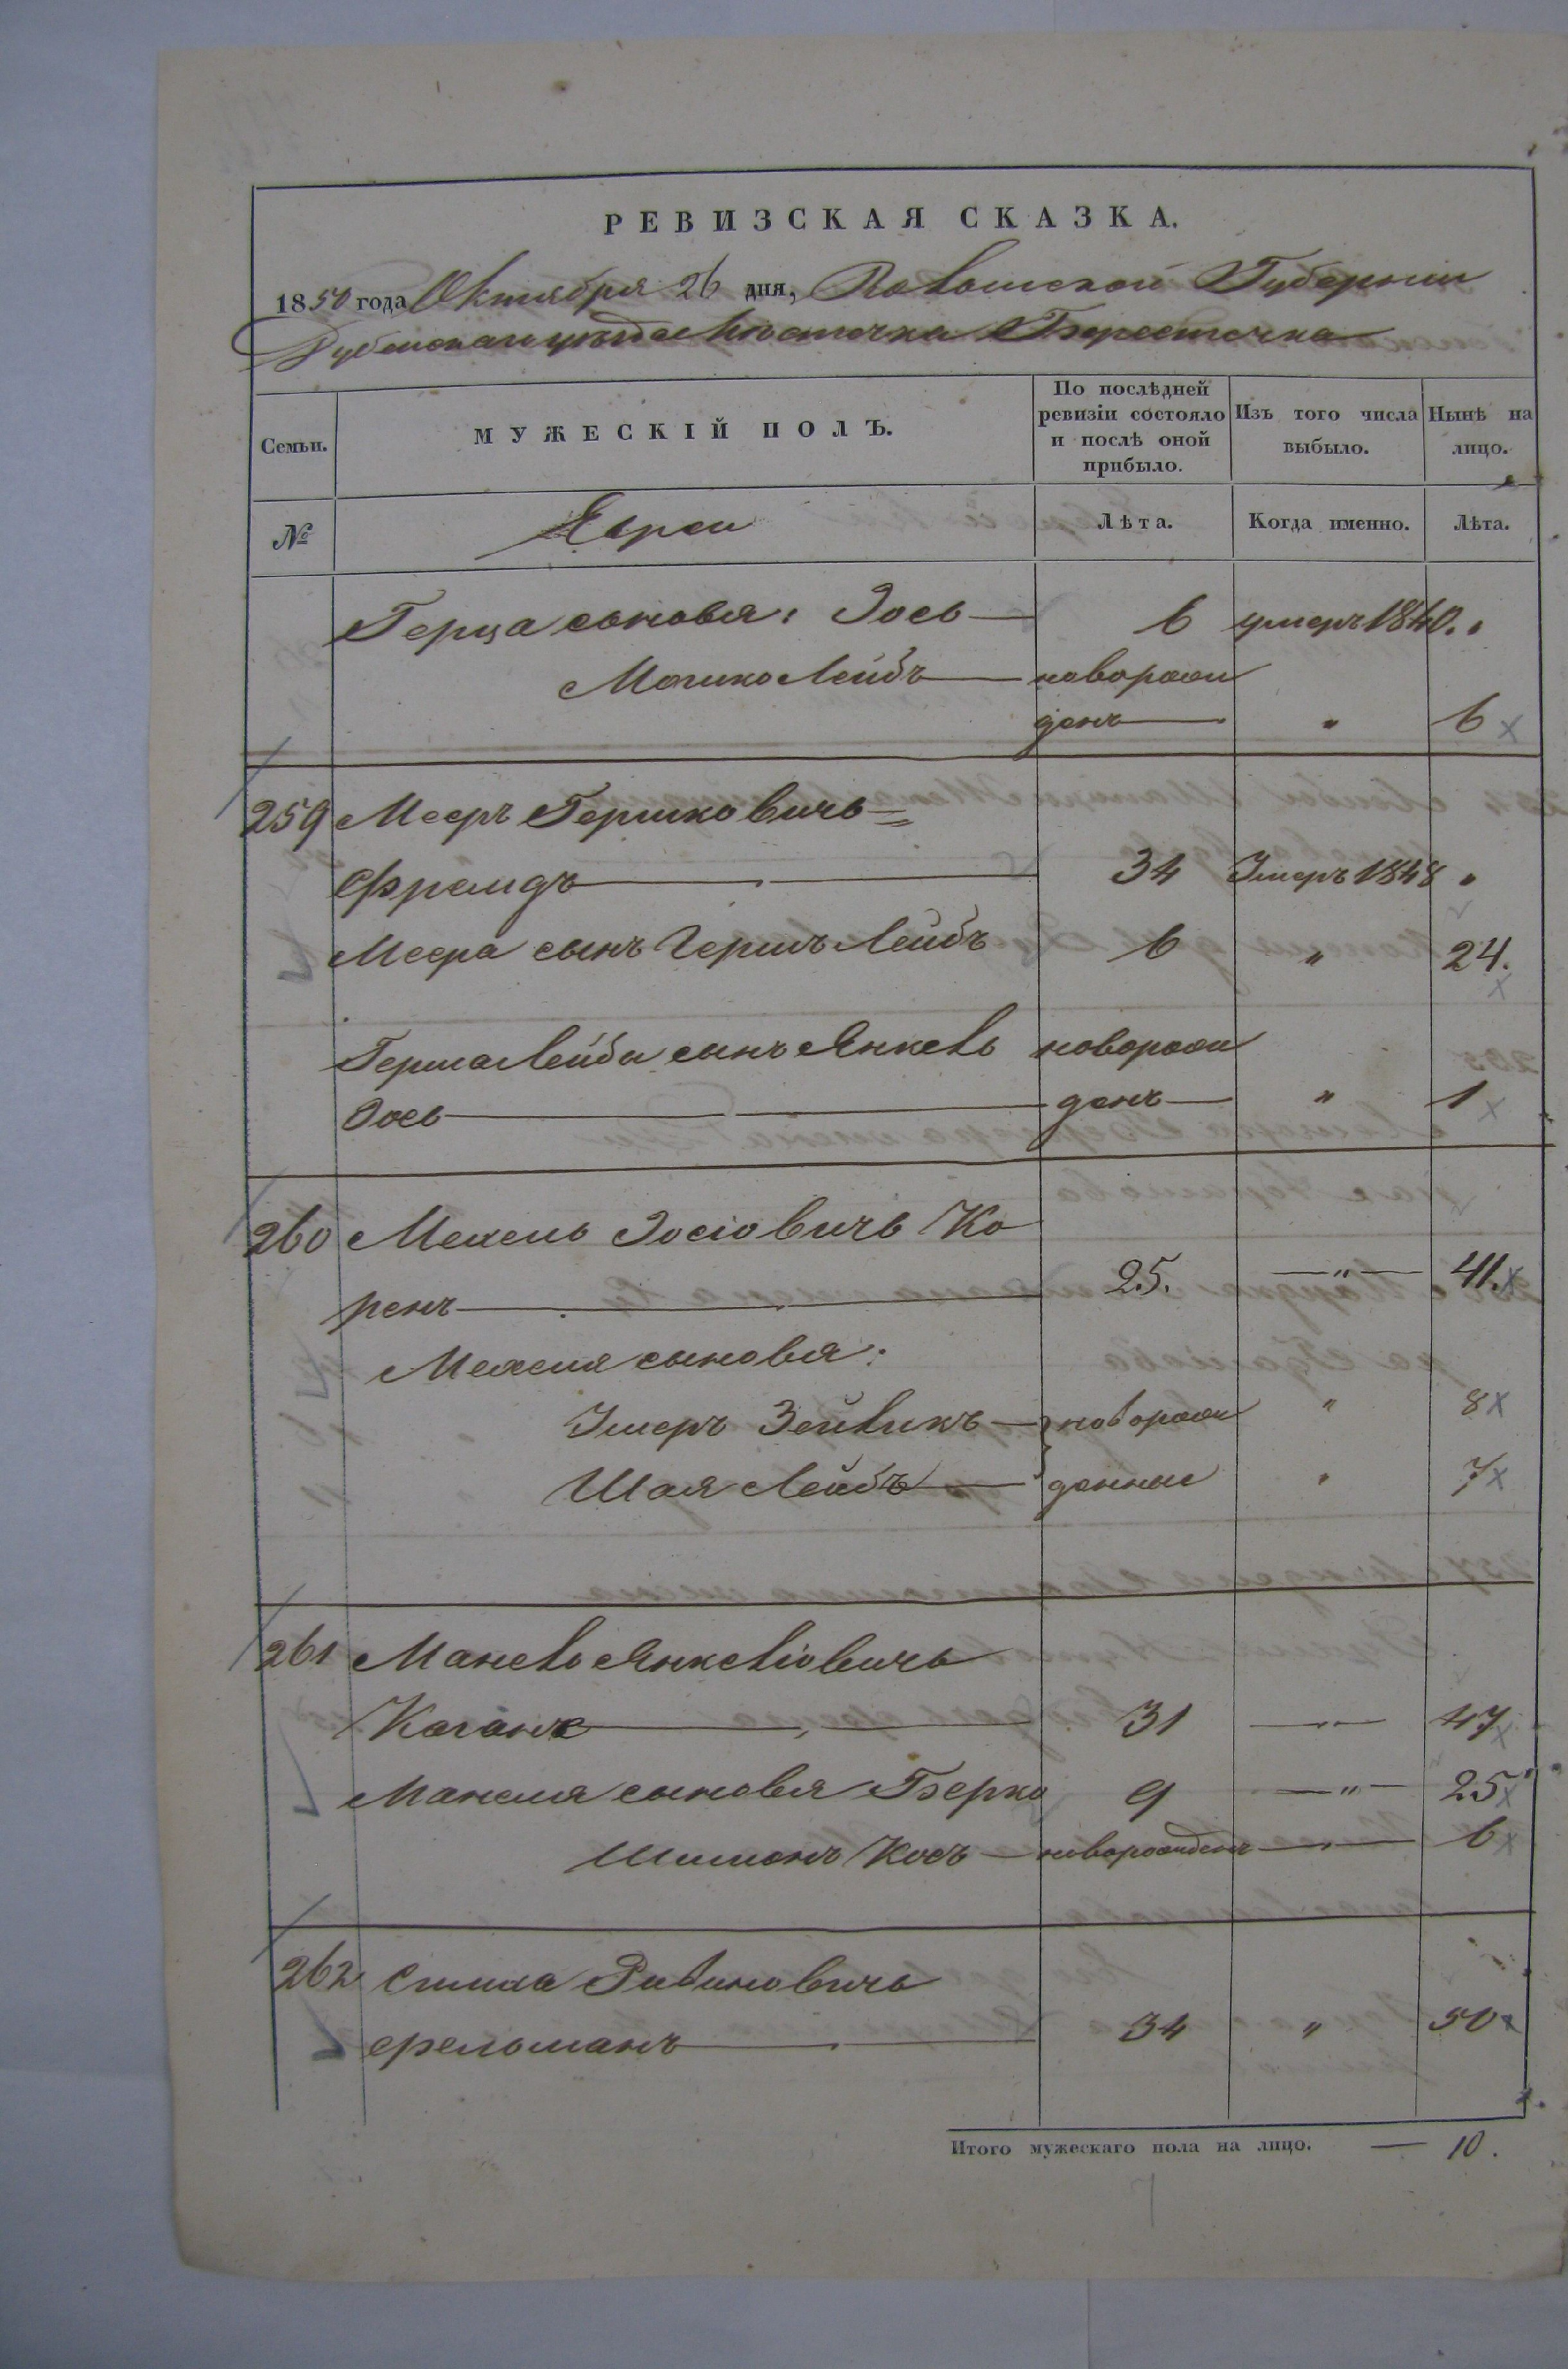 РЕВИЗСКАЯ СКАЗКА.
1850 года Октября 26 дня, Волынской Губернии
Дубенскаго уѣзда Мѣстечка Берестечка
Семьи. МУЖЕСКІЙ ПОЛЪ. По послѣдней ревизіи состояло и послѣ оной прибыло. Изъ того числа выбыло. Нынѣ на лицо.
№ Евреи Лѣта. Когда именно. Лѣта.
Герца сыновья: Іось 6 умеръ 1840. "
Мошко Лейбъ новорож
денъ " 6
259 Мееръ Гершковичъ
34 Умеръ 1848 "
Меера сынъ Гершъ Лейбъ 6 " 24.
Герша Лейбы сынъ Янкель новорож
Іось денъ " 1
260 Мехель Іосіовичъ Ко
ренъ 25. " 41.
Мехеля сыновья:
Ушеръ Зейликъ новорож " 8
Шая Лейбъ денные " 7
261 Манель Янкеліовичъ
Каганъ 31 " 47
Манеля сыновья Берко 9 " 25
Шимонъ Косъ новорожденъ " 6
262 Симха Рубиновичъ
34 " 50
Итого мужескаго пола на лицо. — 10.